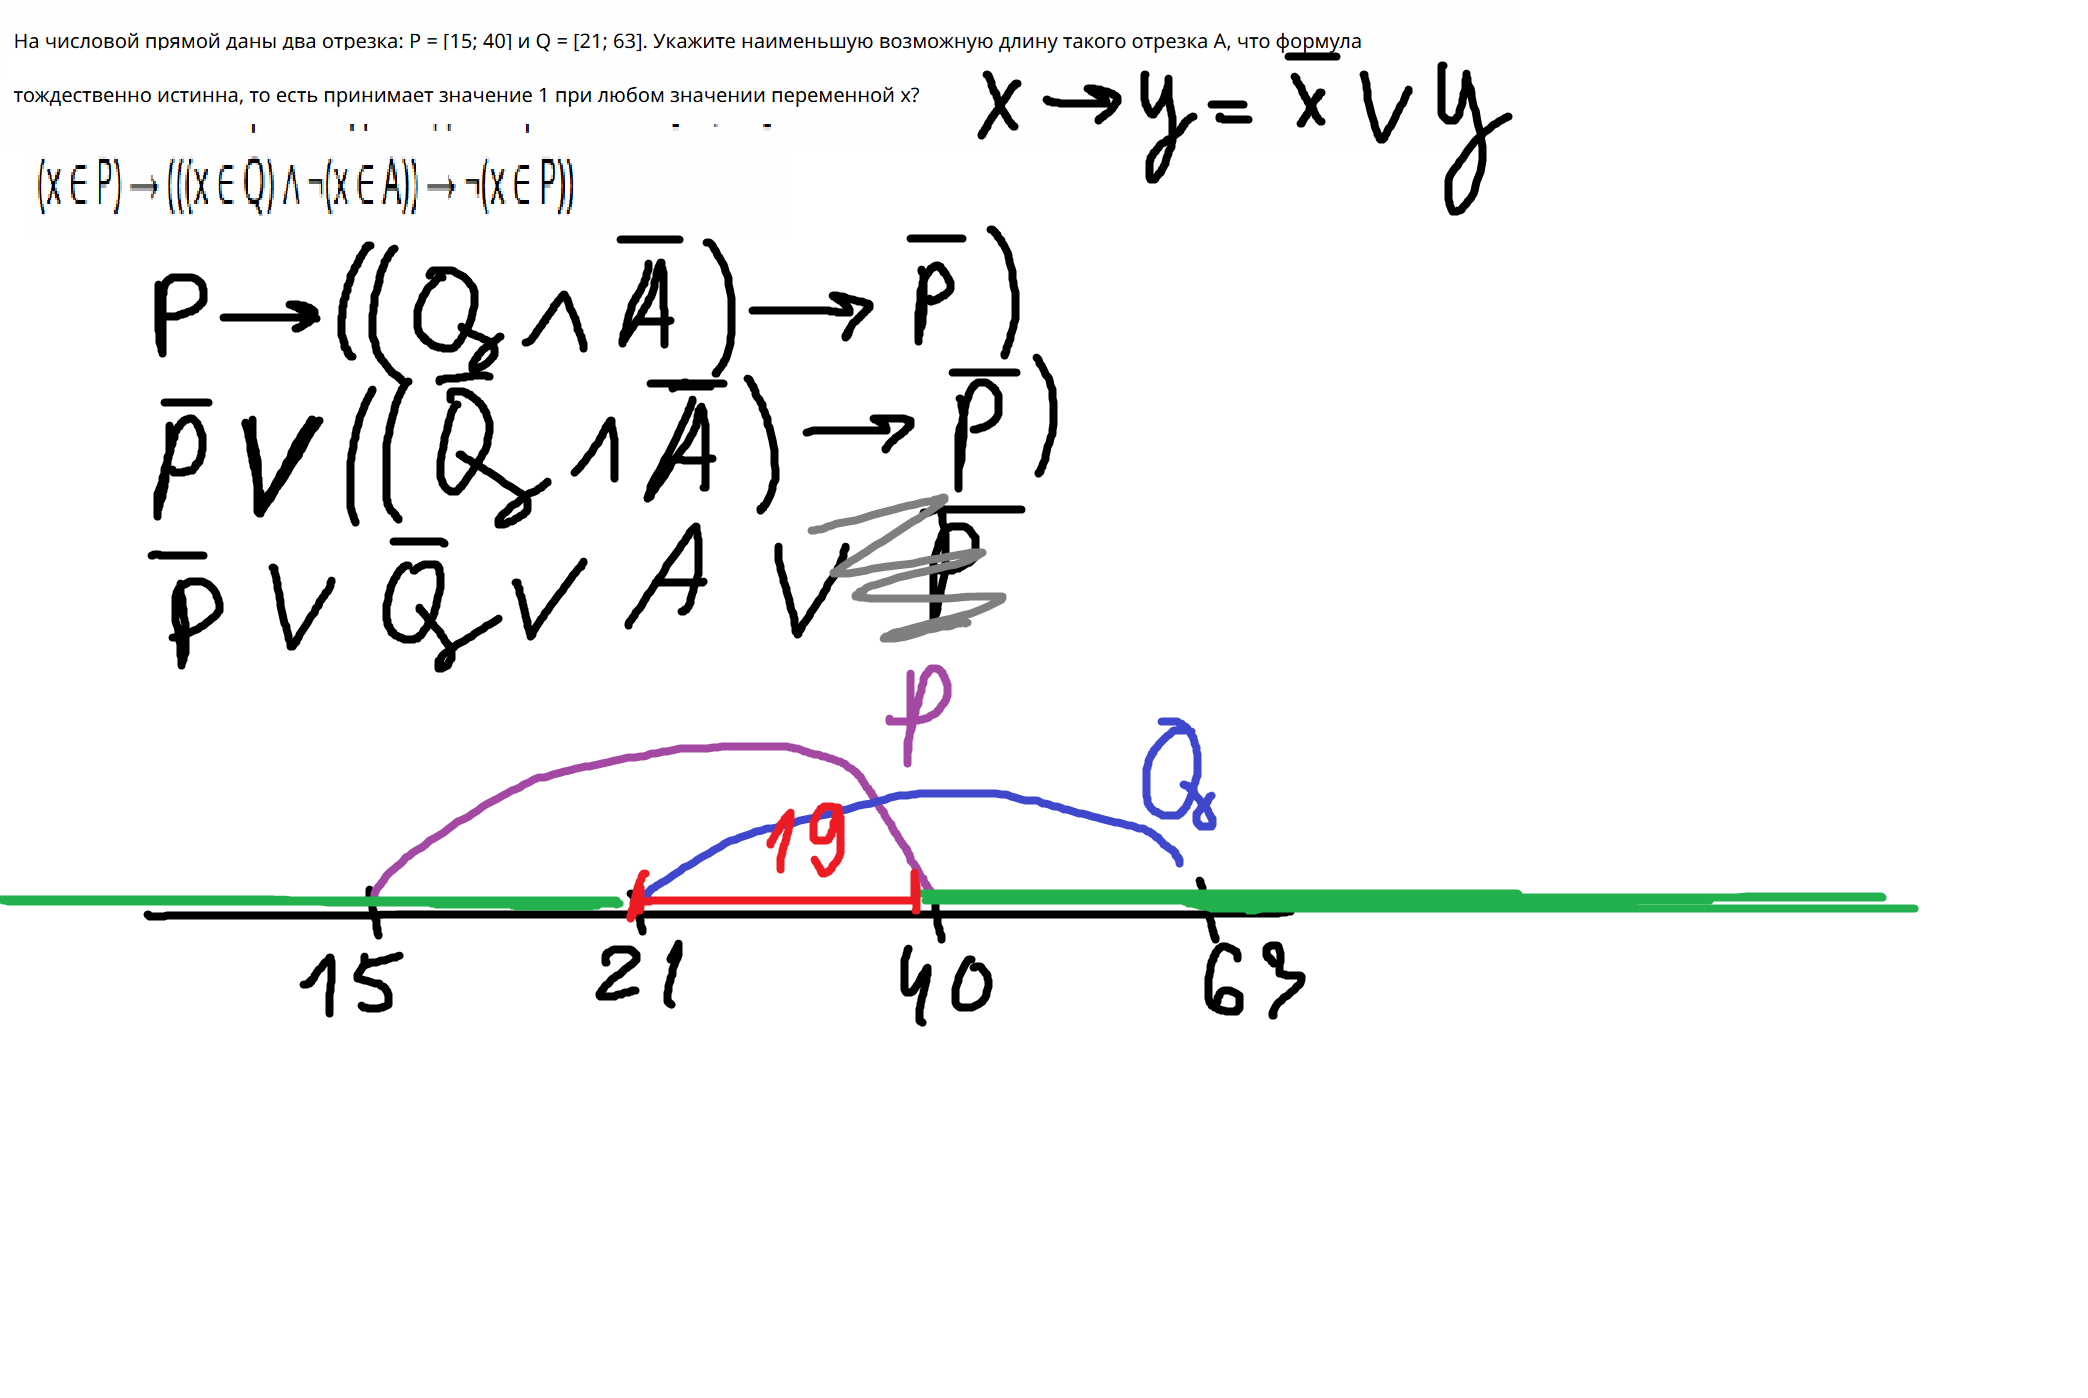 На числовой прямой даны два отрезка: P = [15; 40] и Q = [21; 63]. Укажите наименьшую возможную длину такого отрезка A, что формула
тождественно истинна, то есть принимает значение 1 при любом значении переменной x?
x → y = x̅ ∨ y
(x ∈ P) → (((x ∈ Q) ∧ ¬(x ∈ A)) → ¬(x ∈ P))
P → ((Q ∧ A̅) → P̅)
P̅ ∨ ((Q̅ ∧ A̅) → P̅)
P̅ ∨ Q̅ ∨ A ∨ P̅
P
Q
19
15 21 40 63